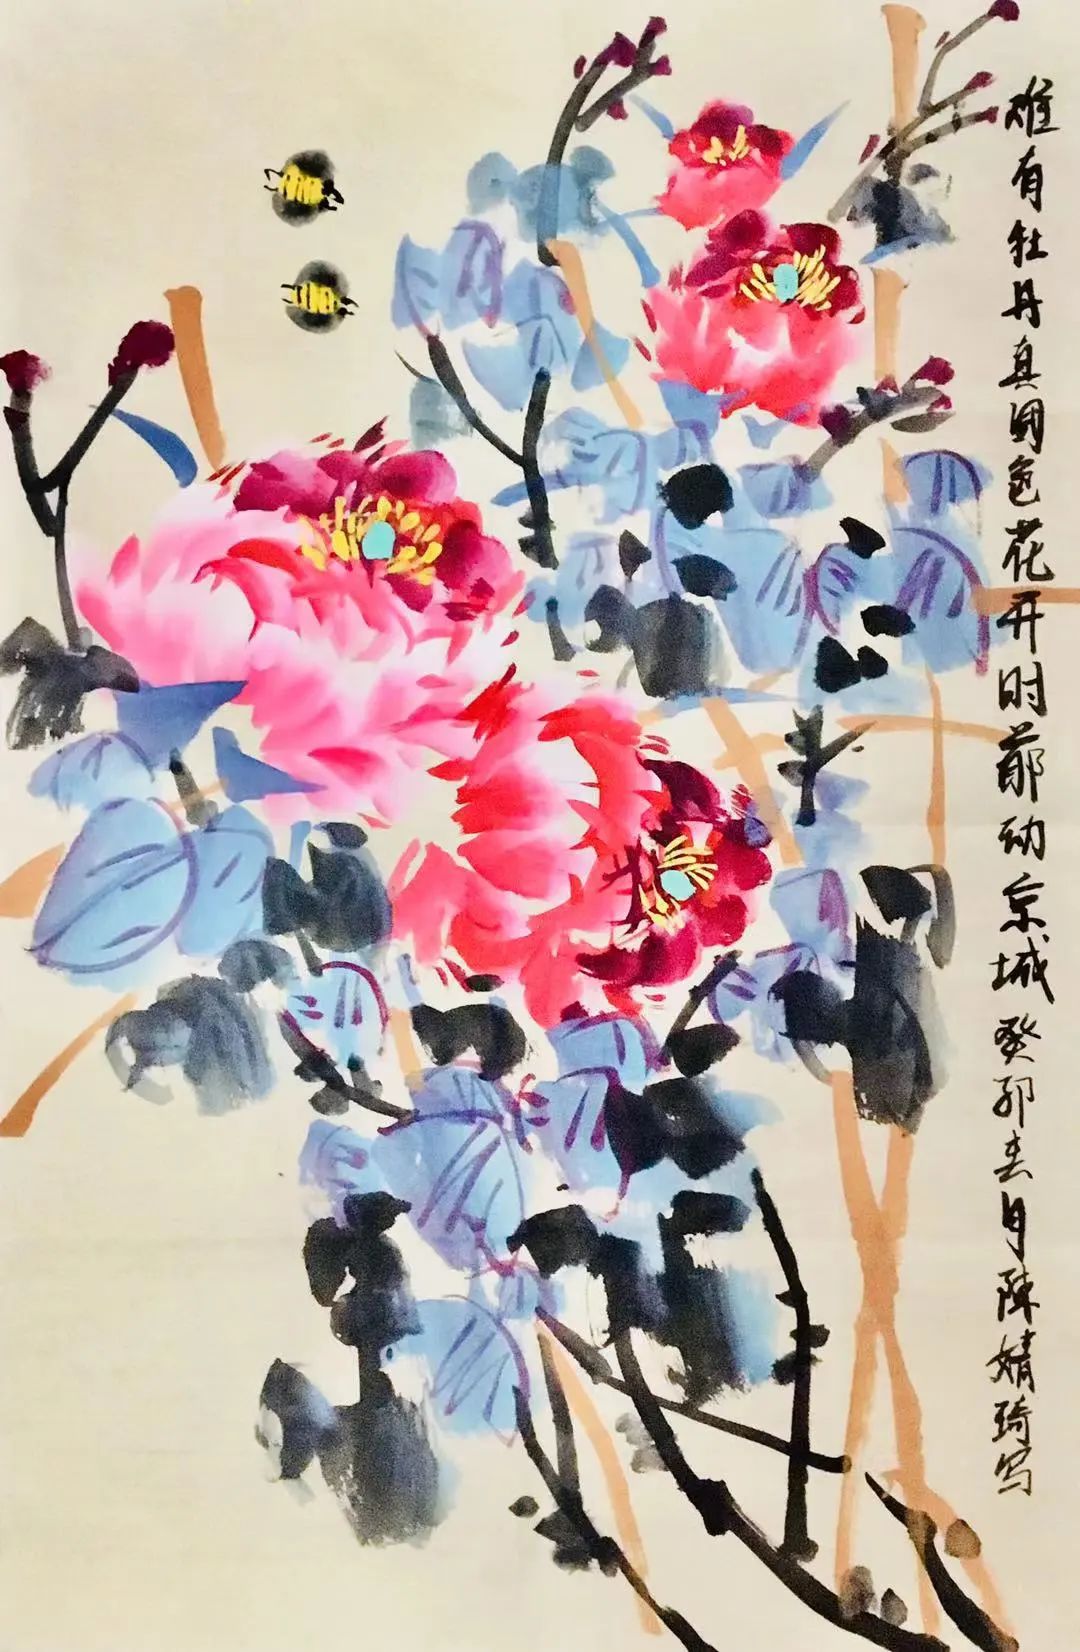 唯有牡丹真國色花开时節动京城癸卯春月陳婧琦写